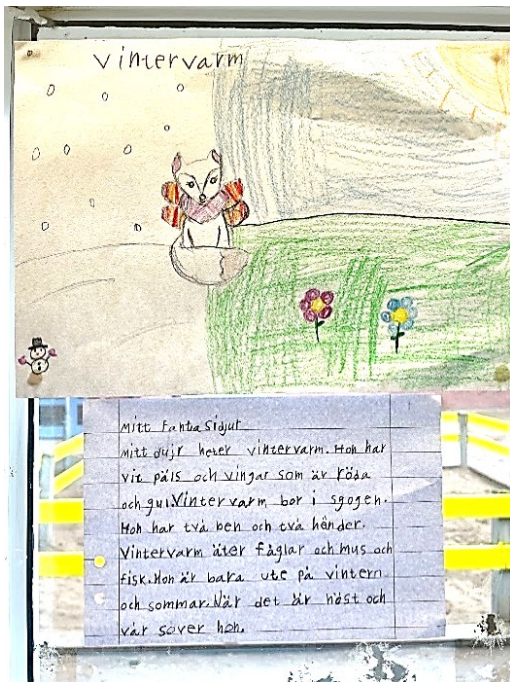 Vintervarm
Mitt Fantasidjur
Mitt dujr heter vintervarm. Hon har
vit päls och vingar som är röda
och gul. Vintervarm bor i sgogen.
Hon har två ben och två händer.
Vintervarm äter fåglar och mus och
fisk. Hon är bara ute på vintern
och sommar. När det är höst och
vår sover hon.